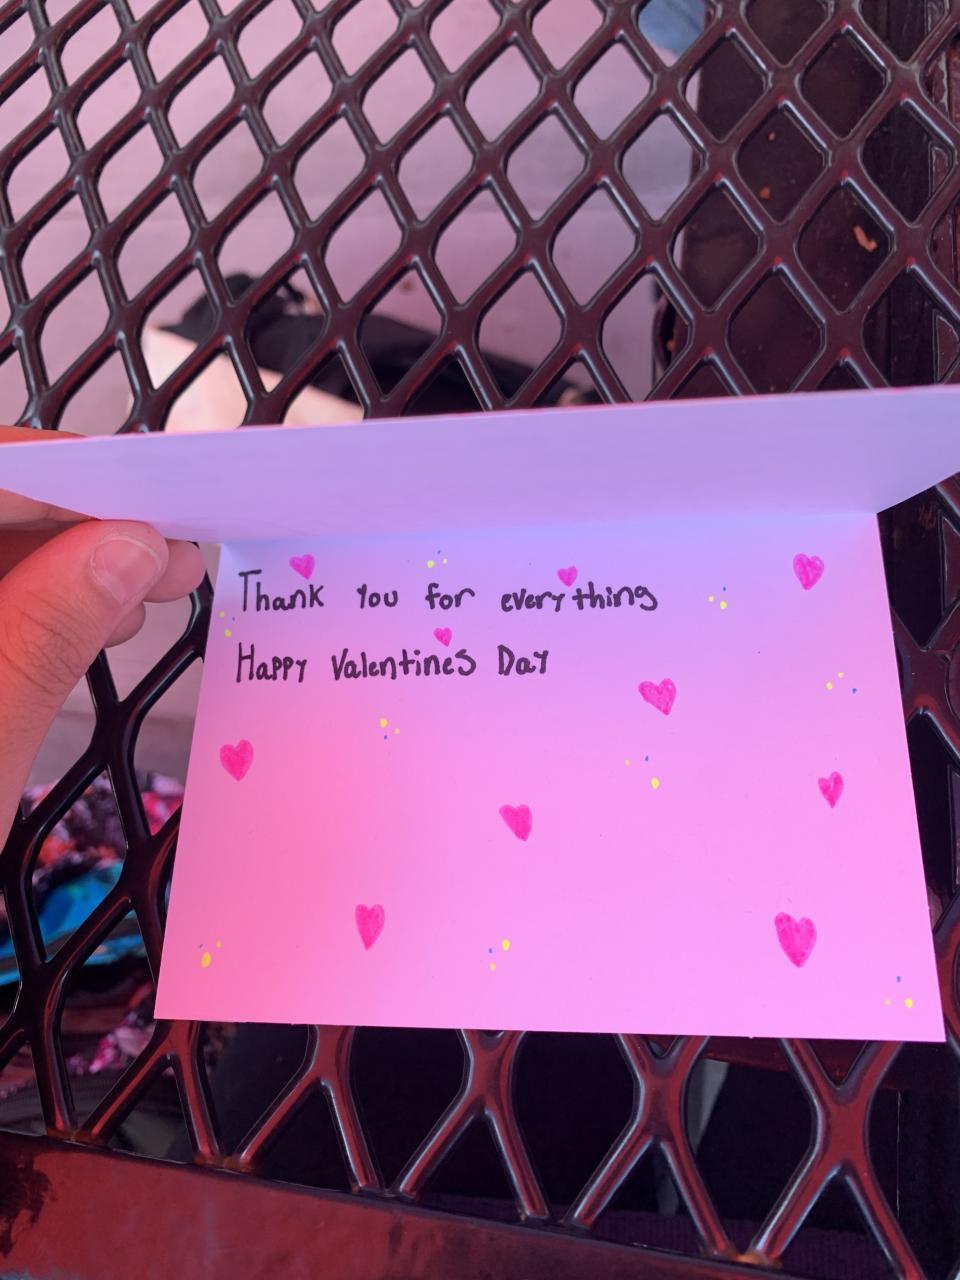 Thank you for everything
Happy Valentines Day